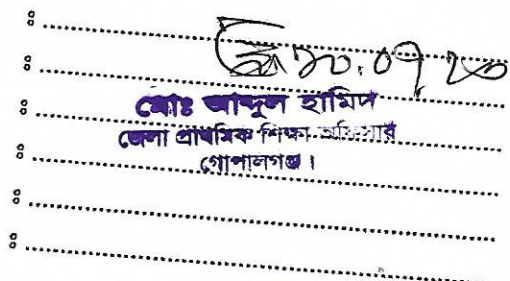 ঃ
ঃ ১০.০৭.২০
ঃ মোঃ আব্দুল হামিদ
জেলা প্রাথমিক শিক্ষা অফিসার
ঃ গোপালগঞ্জ।
ঃ
ঃ